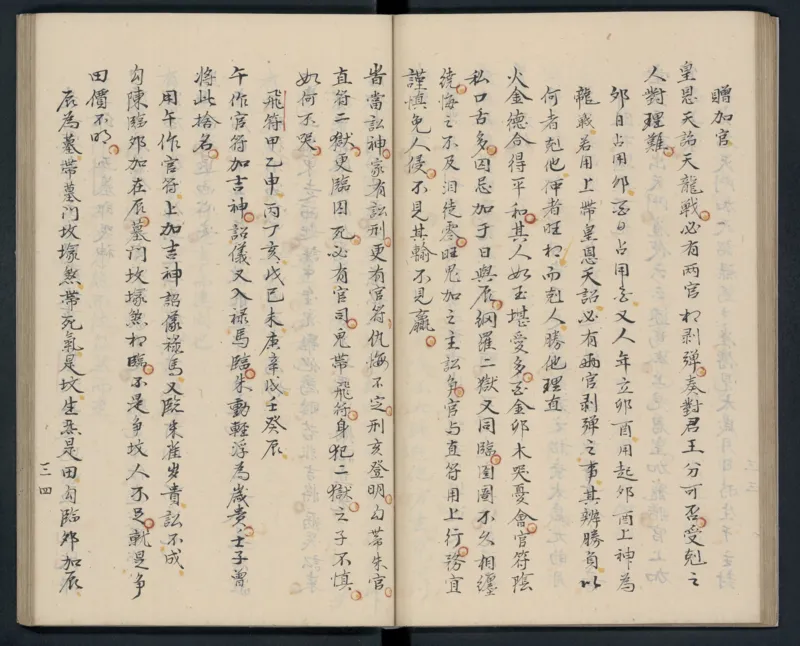 贈加官
皇恩天詔天龍戰必有两官相剥彈奏對君王分可否受剋之
人對理難
卯日占用卯酉日占用酉又人年立卯酉用起卯酉上神為
龍戰若用上帶皇恩天詔必有两官剥彈之事其辨勝負以
何者剋他俾者旺相而剋人勝他理直
火金德合得平和其人如玉堪受多酉金卯木哭憂會官符陰
私口古多囚忌加于日與辰網羅二獄又同臨囹圄不久相纏
繞悔之不及泪徒零旺鬼加之主訟爭官与直符用上行務宜
謹慎免人侵不見其輸不見贏
皆當訟神家有訟刑更有官符仇悔不定刑亥登明勾帶朱官
直符二獄更臨囚死必有官司鬼帶飛符身犯二獄之子不慎
如何不哭
飛符甲乙申丙丁亥戊已未庚辛戌壬癸辰
午作官符加吉神詔儀又入禄馬臨朱動輕浮為歲貴壬子曾
將此捨名
用午作官符上加吉神詔儀禄馬又臨朱雀岁貴訟不成
勾陳臨卯加在辰墓門坟塚煞相臨不是爭坟人不足軏是争
田價不明
辰為墓帶墓門坟塚煞帶死氣是坟生炁是田勾臨卯加辰
三四